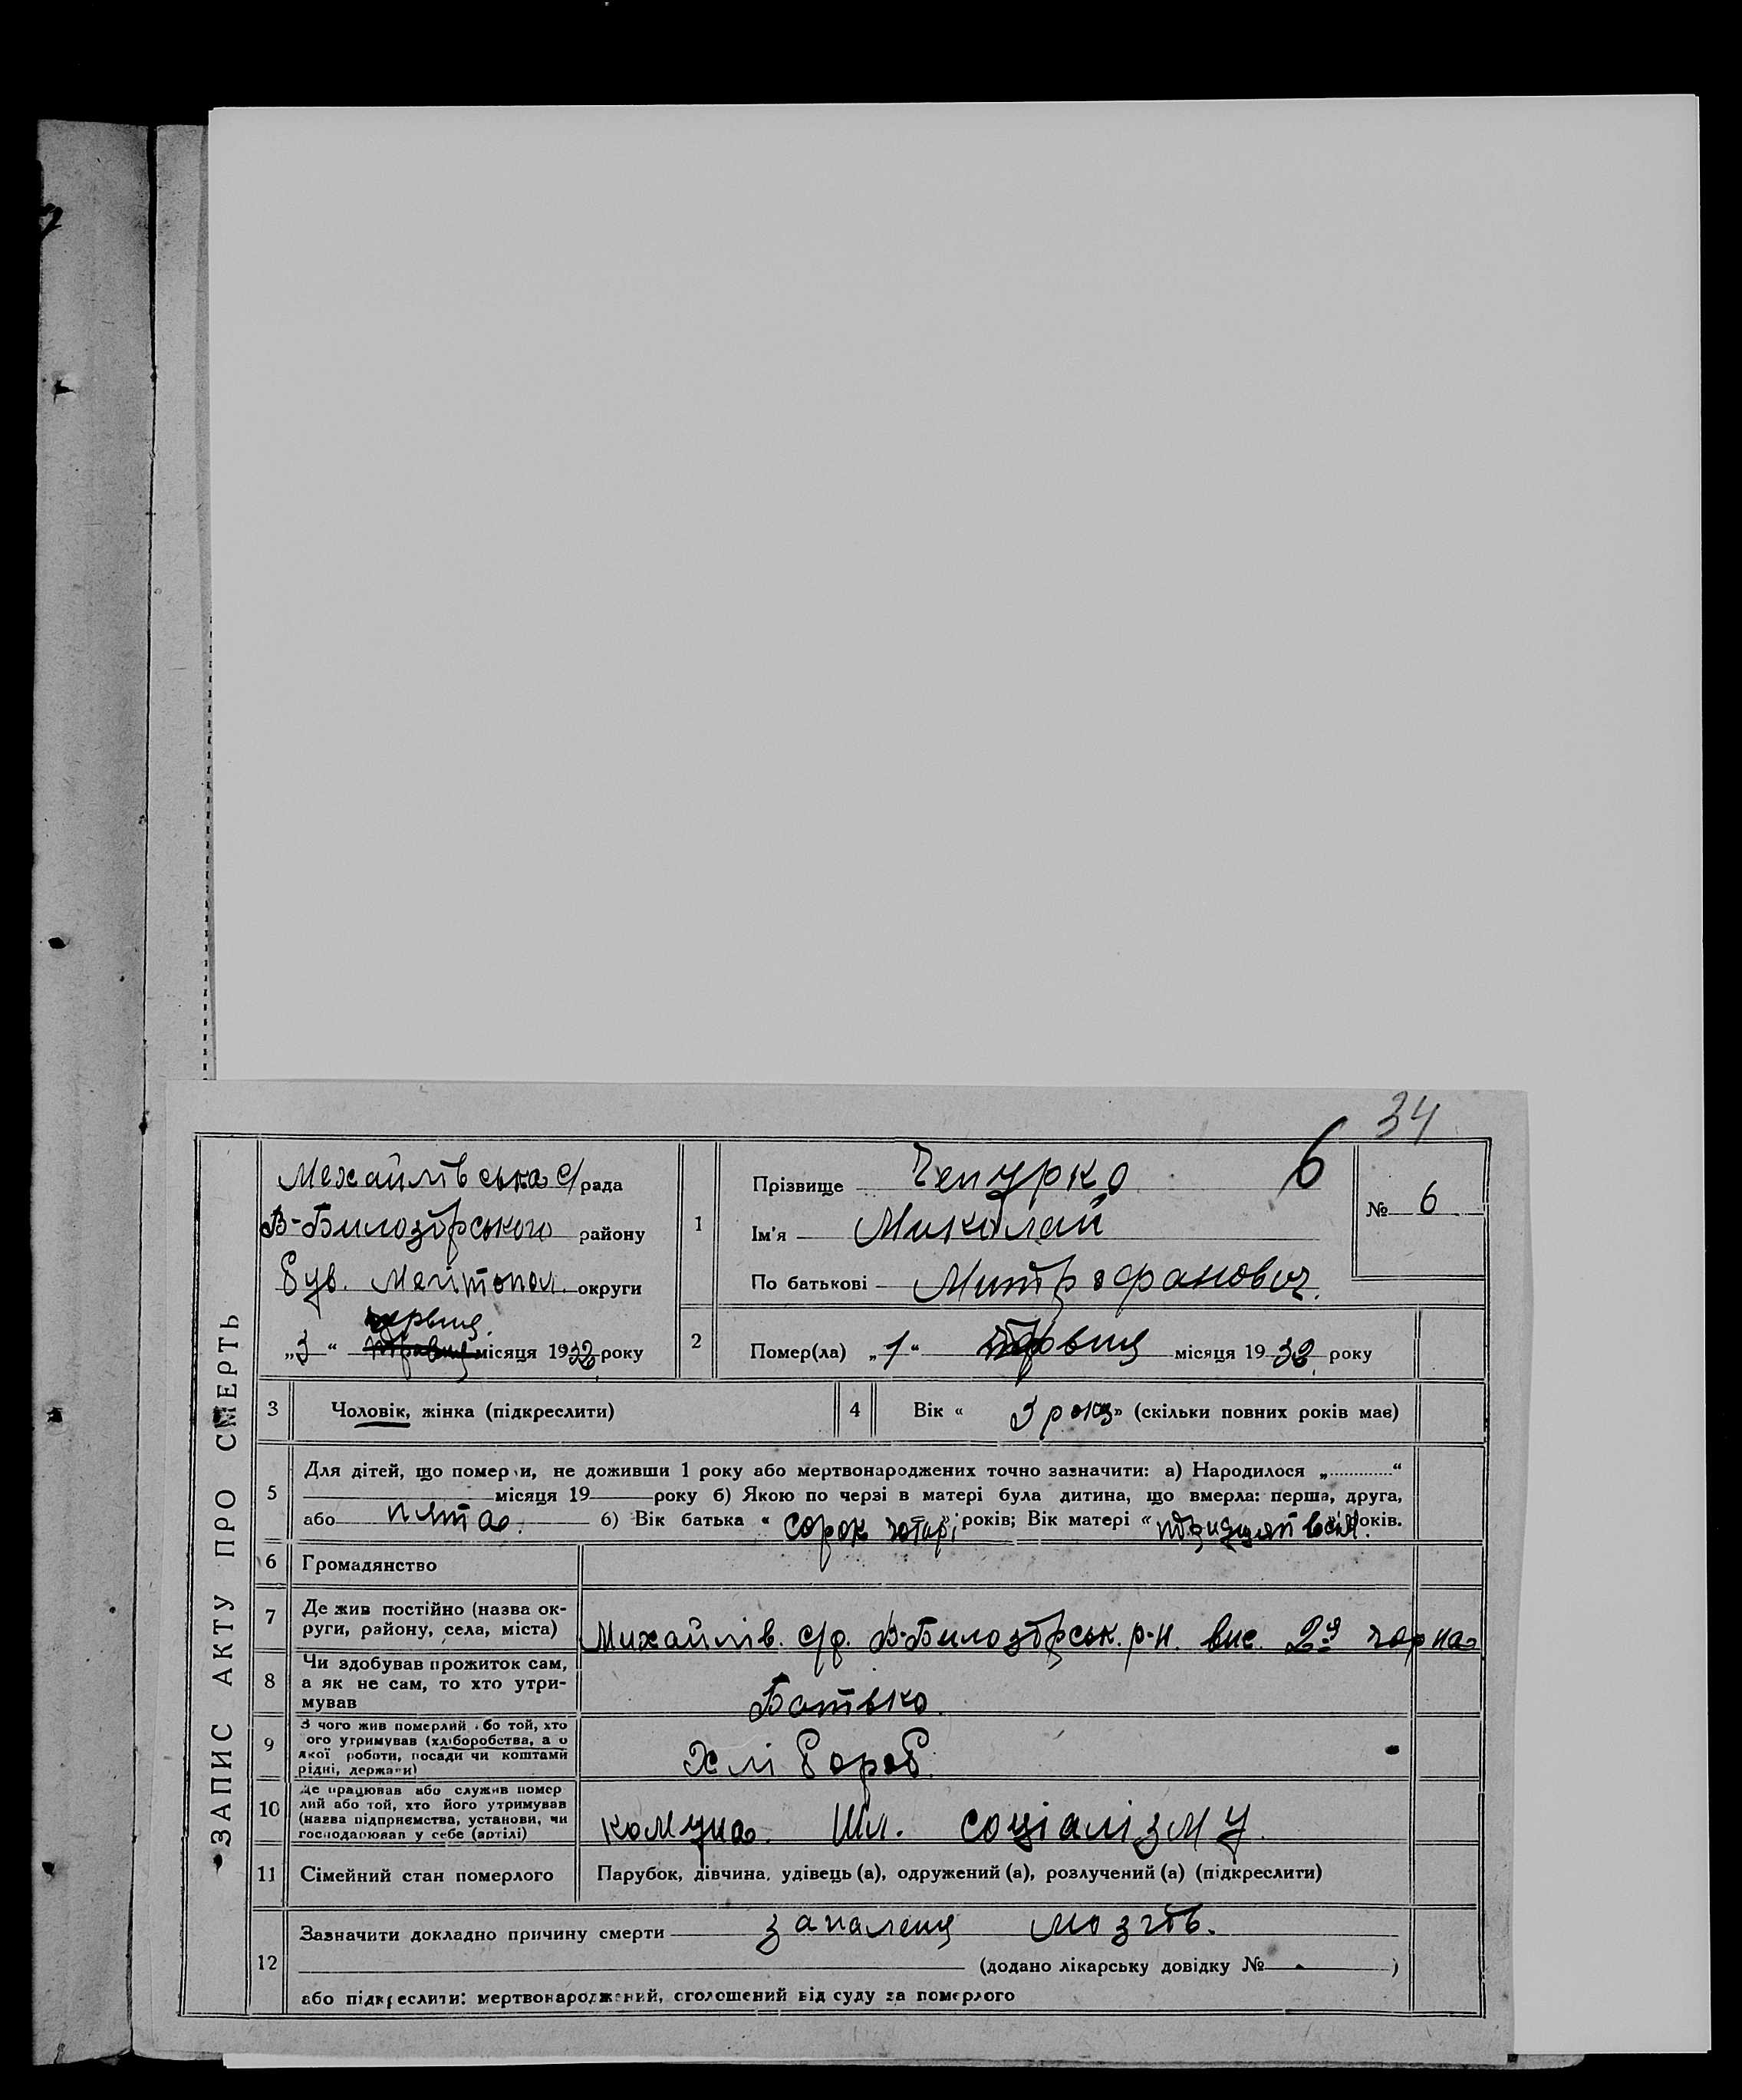 34
ЗАПИС АКТУ ПРО СМЕРТЬ
Михайлівська с/рада
В-Билозърського району
був. Мелітопол. округи
червця
„3“ травця місяця 1932 року
1
Прізвище Чепурко 6
Ім'я Миколай
По батькові Митрофанович.
№ 6
2
Помер(ла) „1“ червця місяця 1932 року
3 Чоловік, жінка (підкреслити)
4 Вік « 3 роки» (скільки повних років має)
5
Для дітей, що померли, не доживши 1 року або мертвонароджених точно зазначити: а) Народилося „............“
місяця 19 року б) Якою по черзі в матері була дитина, що вмерла: перша, друга,
або пята. б) Вік батька « сорок чотирі» років; Вік матері « тридцят вісім» років.
6 Громадянство
7
Де жив постійно (назва ок-
руги, району, села, міста)
Михайлів. с/р. В-Билозърськ. р-н. вис. 2га
8
Чи здобував прожиток сам,
а як не сам, то хто утри-
мував
Батько.
9
З чого жив померлий або той, хто
ого утримував (хліборобства, а о
якої роботи, посади чи коштами
рідні, держави)
Хлібороб.
10
Де працював або служив помер
лий або той, хто його утримував
(назва підприємства, установи, чи
господарював у себе (артілі)
комуна. Шл. соціалізму.
11 Сімейний стан померлого
Парубок, дівчина, удівець (а), одружений (а), розлучений (а) (підкреслити)
12
Зазначити докладно причину смерти запаленя мозгів.
(додано лікарську довідку № )
або підкреслити: мертвонароджений, оголошений від суду за померлого